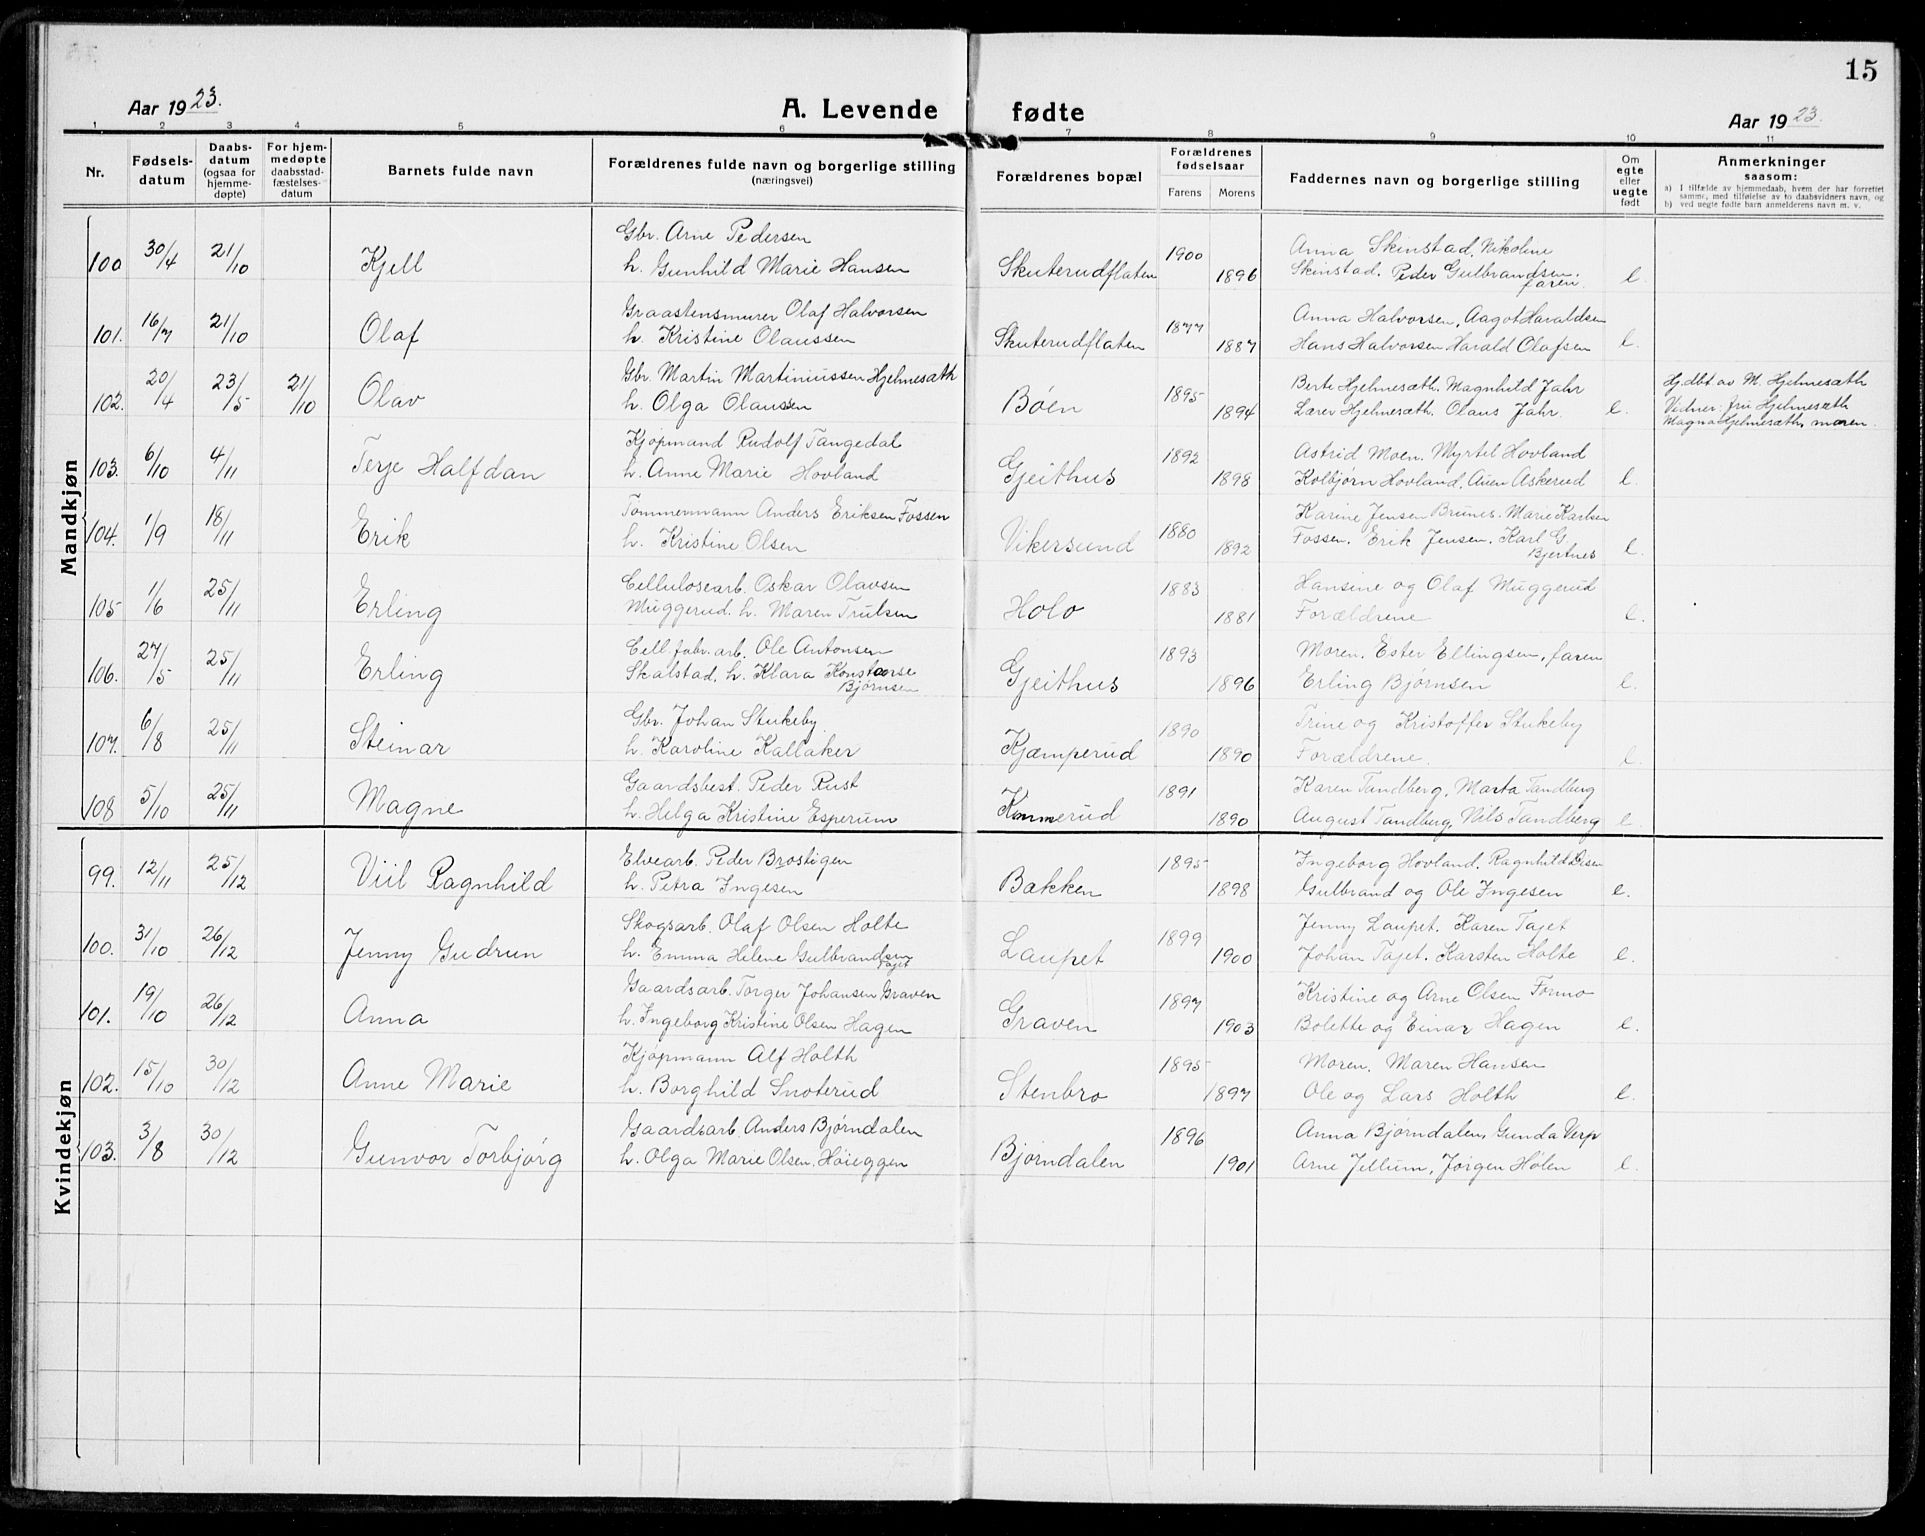 15
Aar 1923.
A. Levende fødte
Aar 1923.
1 2 3 4 5 6 7 8 9 10 11
Nr.
Fødselsdatum
Daabsdatum (ogsaa for hjemmedøpte)
For hjemmedøpte daabsstadfæstelsesdatum
Barnets fulde navn
Forældrenes fulde navn og borgerlige stilling (næringsvei)
Forældrenes bopæl
Forældrenes fødselsaar
Farens Morens
Faddernes navn og borgerlige stilling
Om egte eller uegte født
Anmerkninger saasom:
a) I tilfælde av hjemmedaab, hvem der har forrettet samme, med tilføielse av to daabsvidners navn, og
b) ved uegte fødte barn anmelderens navn m. v.
Mandkjøn
100 30/4 21/10 Kjell
Gbr. Arne Pedersen
h. Gunhild Marie Hansen
Skuterudflaten 1900 1896
Anna Skinstad, Nikoline
Skinstad. Peder Gulbrandsen. faren. e.
101. 16/7 21/10 Olaf
Graastensmurer Olaf Halvorsen
h. Kristine Olaussen
Skuterudflaten 1877 1887
Anna Halvorsen, Aagot Haraldsen
Hans Halvorsen Harald Olafsen e.
102. 20/4 23/5 21/10 Olav
Gbr. Martin Martiniussen Hjelmesæth
h. Olga Olaussen
Bøen 1895 1894
Berte Hjelmesæth. Magnhild Jahr
Hjelmesæth. Olaus Jahr. e.
Hj.dbt av M. Hjelmesæth
Vidner: fru Hjelmesæth
Magna Hjelmesæth, moren.
103. 6/10 4/11 Terje Halfdan
Kjøpmand Rudolf Tangedal
h. Anne Marie Hovland
Gjeithus 1892 1898
Astrid Moen. Myrtel Hovland
Kolbjørn Hovland, Askerud e.
104. 1/9 18/11 Erik
Tømmermann Anders Eriksen Fossen
h. Kristine Olsen
Vikersund 1880 1892
Karine Jensen Brunes. Marie Karlsen
Fossen. Erik Jensen. Karl G. Bjertnes e.
105 1/6 25/11 Erling
Cellulosearb. Oskar Olavsen
Muggerud. h. Maren Trulsen
Holo 1883 1881
Hansine og Olaf Muggerud
Forældrene e.
106. 27/5 25/11 Erling
Cell.fabr.arb. Ole Antonsen
Skalstad, h. Klara Konstanse Bjørnsen
Gjeithus 1893 1896
Moren. Ester Ellingsen, faren
Erling Bjørnsen e.
107. 6/8 25/11 Steinar
Gbr. Johan Stukeby
h. Karoline Kallaker
Kjæmperud 1890 1890
Trine og Kristoffer Stukeby
Forældrene. e.
108 5/10 25/11 Magne
Gaardsbest. Peder Rust
h. Helga Kristine Esperum
Kommerud 1891 1890
Karen Tandberg, Marta Tandberg
August Tandberg, Nils Tandberg e.
Kvindekjøn
99. 12/11 25/12 Viil Ragnhild
Elvearb. Peder Brostigen
h. Petra Ingesen
Bakken 1895 1898
Ingeborg Hovland. Ragnhild Disen
Gulbrand og Ole Ingesen e.
100. 31/10 26/12 Jenny Gudrun
Skogsarb. Olaf Olsen Holte
h. Emma Helene Gulbrandsen Tajet
Laupet 1899 1900
Jenny Laupet. Karen Tajet
Johan Tajet. Karsten Holte e.
101. 19/10 26/12 Anna
Gaardsarb. Torger Johansen Graven
h. Ingeborg Kristine Olsen Hagen
Graven 1897 1903
Kristine og Arne Olsen Formo
Bolette og Einar Hagen e.
102. 15/10 30/12 Anne Marie
Kjøpmann Alf Holth
h. Borghild Snoterud
Stenbro 1895 1897
Moren. Maren Hansen
Ole og Lars Holth e.
103. 3/8 30/12 Gunvor Torbjørg
Gaardsarb. Anders Bjørndalen
h. Olga Marie Olsen. Høieggen
Bjørndalen 1896 1901
Anna Bjørndalen, Gunda Verp
Arne Jellum, Jørgen Hølen e.